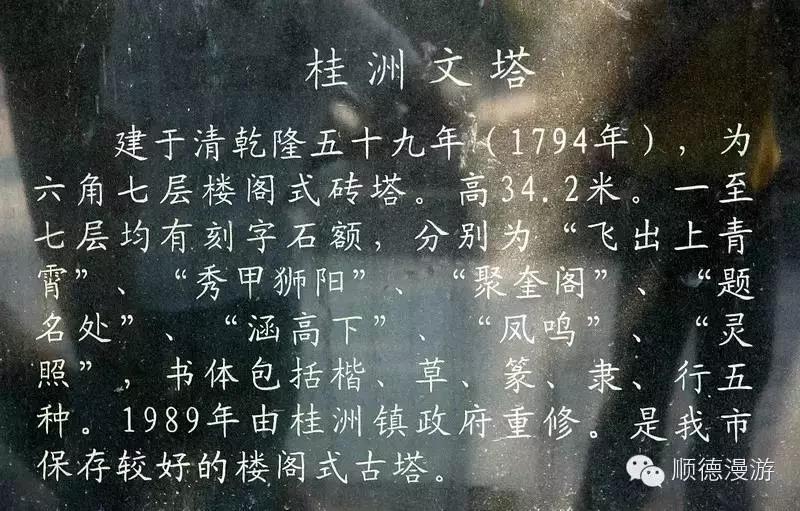 桂洲文塔
建于清乾隆五十九年（1794年），为
六角七层楼阁式砖塔。高34.2米。一至
七层均有刻字石额，分别为“飞出上青
霄”、“秀甲狮阳”、“聚奎阁”、“题
名处”、“涵高下”、“凤鸣”、“灵
照”，书体包括楷、草、篆、隶、行五
种。1989年由桂洲镇政府重修。是我市
保存较好的楼阁式古塔。
顺德漫游